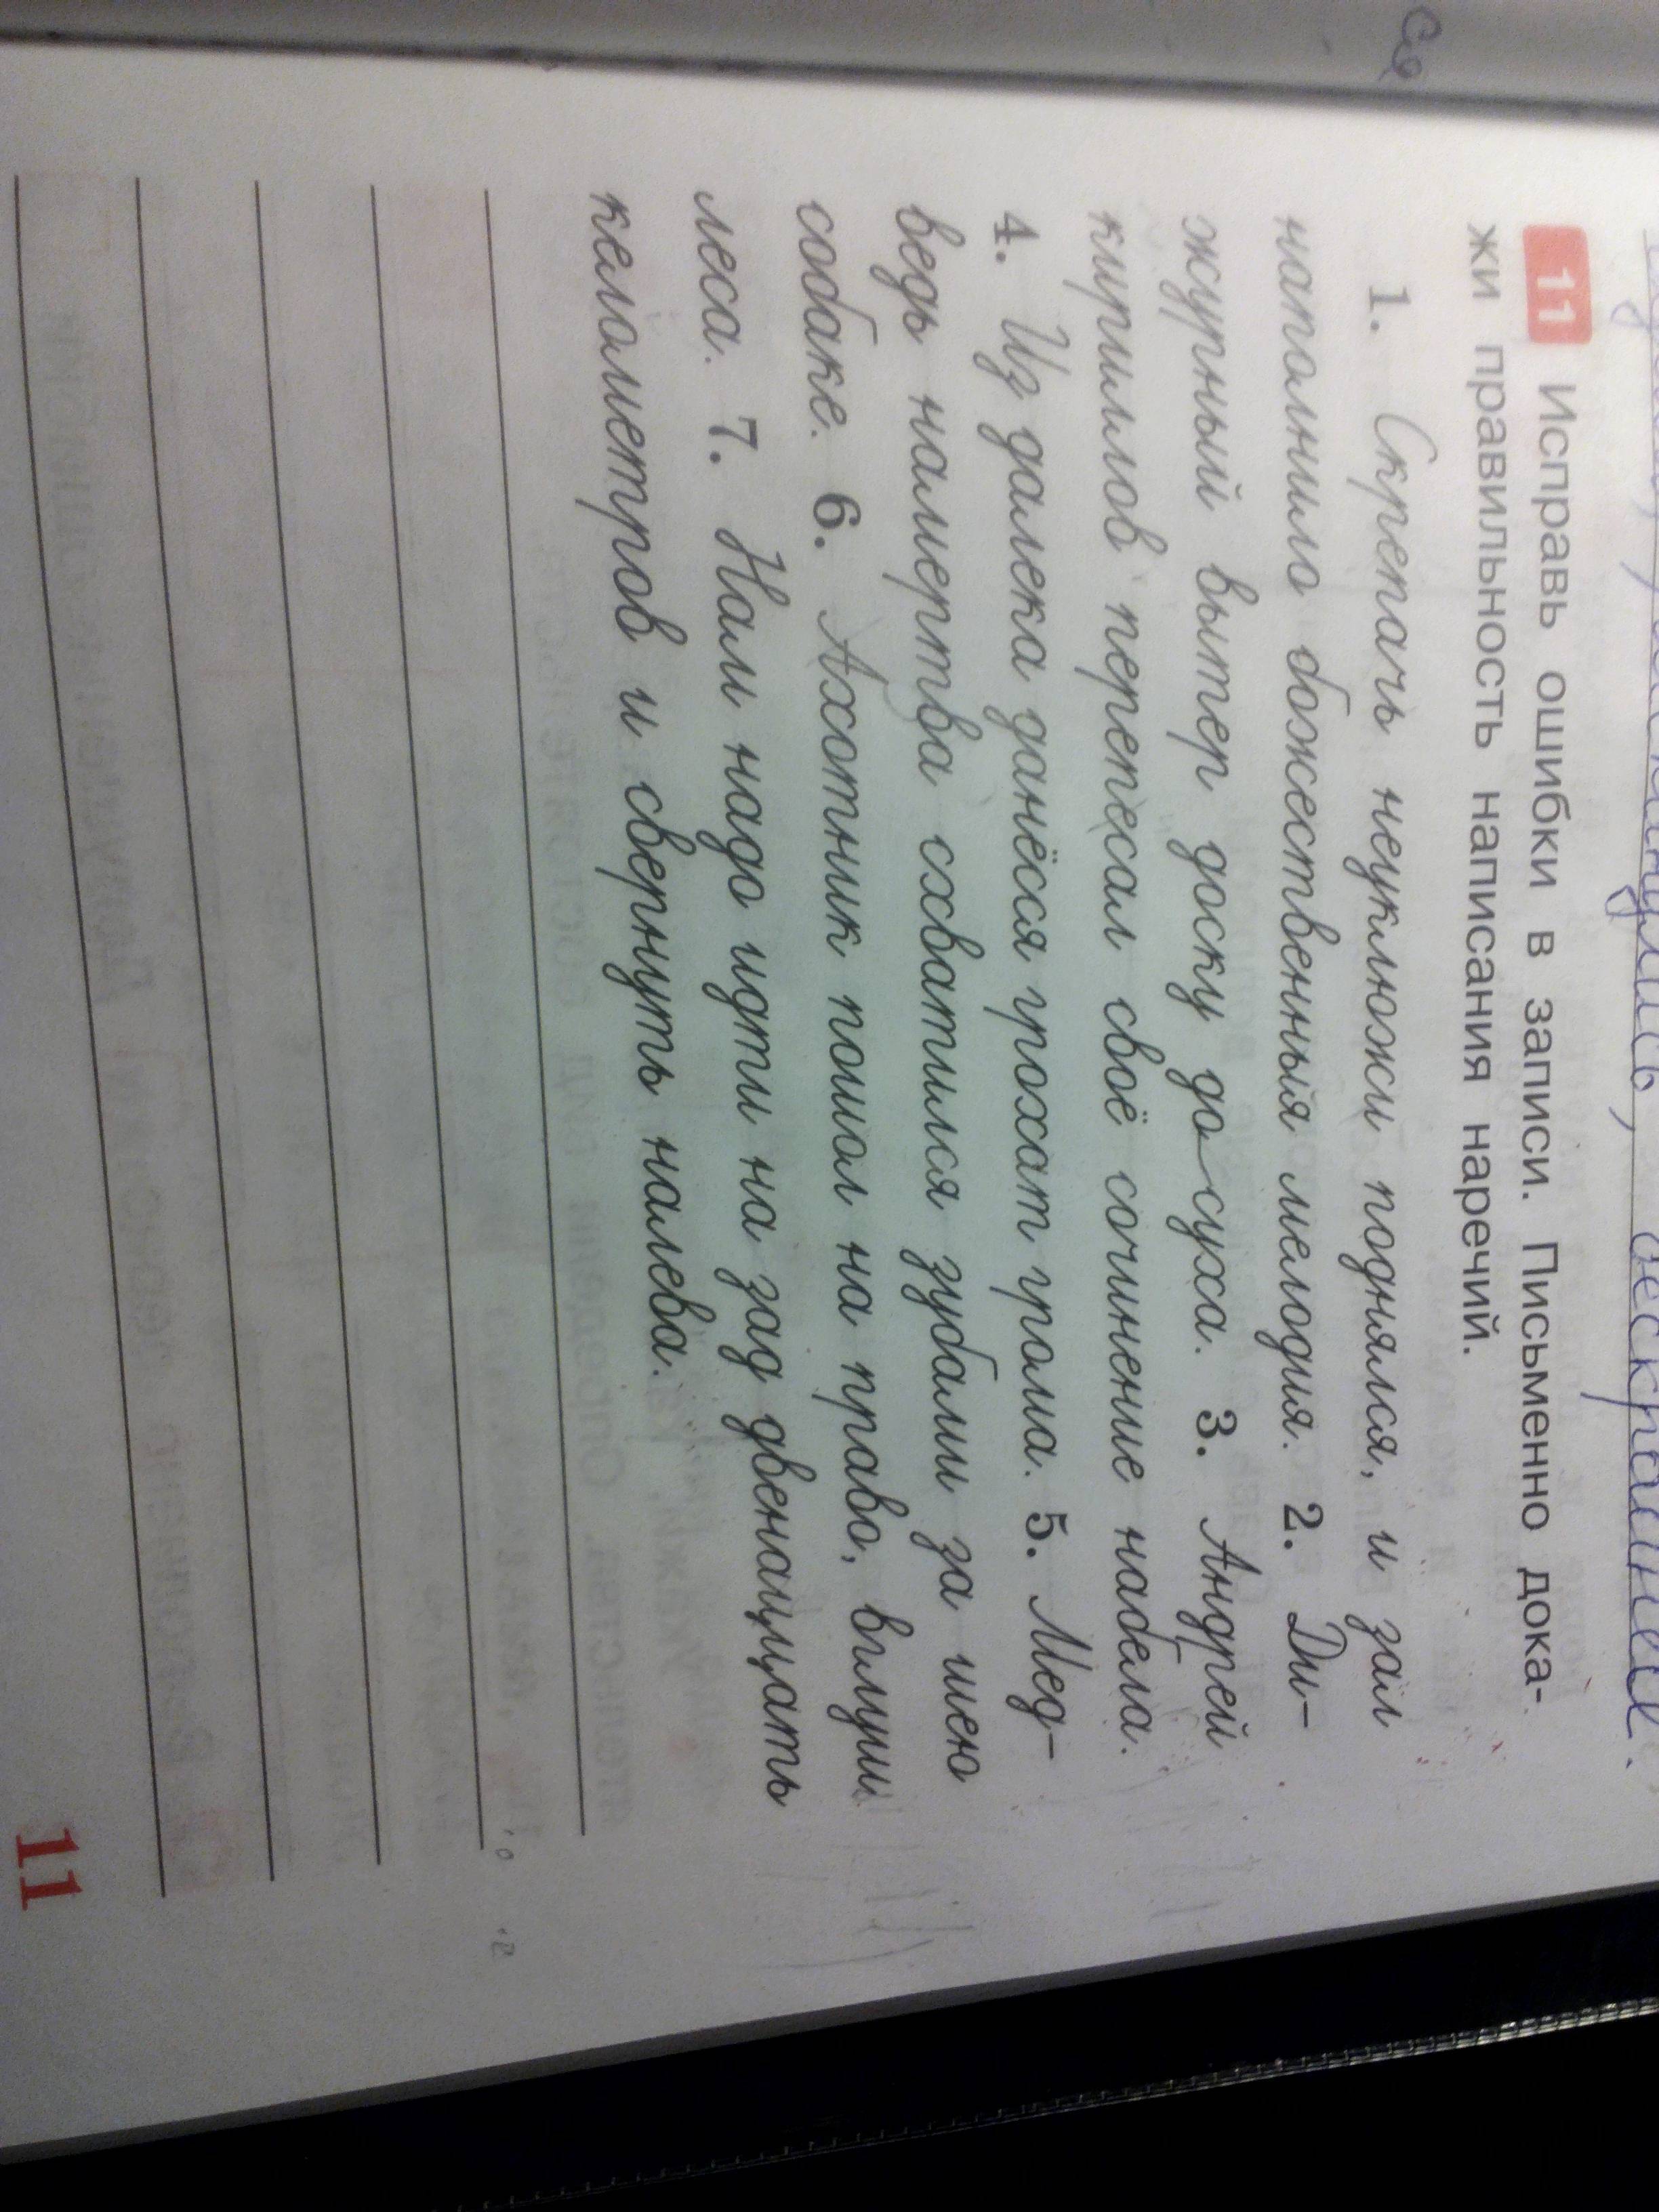 11 Исправь ошибки в записи. Письменно дока-
жи правильность написания наречий.
1. Скрепачь неуклюжи поднялся, и зал
наполнило божественныя мелодия. 2. Ди-
журный вытер доску до суха. 3. Андрей
кирилов перепесал своё сочинение набела.
4. Из далека данёсся грохат грома. 5. Мед-
ведь намертва схватился зубами за шею
собаке. 6. Ахотник пошол на право, вглуш
леса. 7. Нам надо идти на зад двенаццать
келаметров и свернуть налева.
11